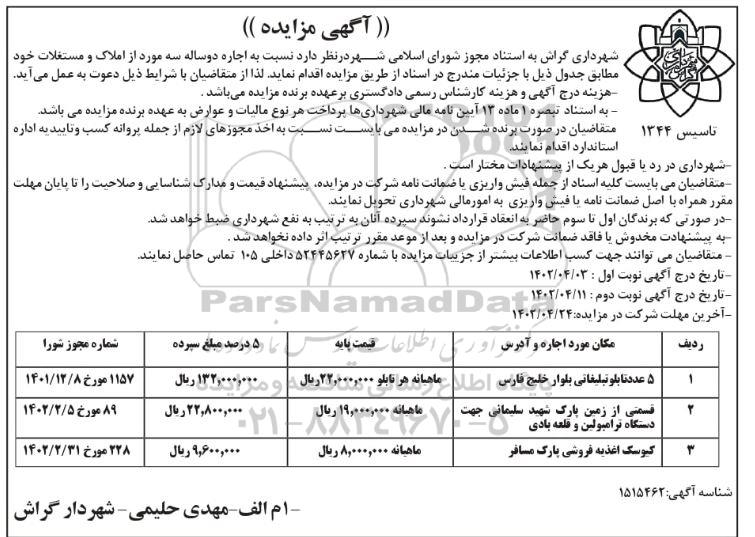 (( آگهی مزایده ))
شهرداری گراش به استناد مجوز شورای اسلامی شهردرنظر دارد نسبت به اجاره دوساله سه مورد از املاک و مستغلات خود
مطابق جدول ذیل با جزئیات مندرج در اسناد از طریق مزایده اقدام نماید. لذا از متقاضیان با شرایط ذیل دعوت به عمل می‌آید.
-هزینه درج آگهی و هزینه کارشناس رسمی دادگستری برعهده برنده مزایده می‌باشد .
- به استناد تبصره ۱ ماده ۱۳ آیین نامه مالی شهرداری‌ها پرداخت هر نوع مالیات و عوارض به عهده برنده مزایده می باشد.
متقاضیان در صورت برنده شدن در مزایده می بایست نسبت به اخذ مجوزهای لازم از جمله پروانه کسب وتاییدیه اداره
استاندارد اقدام نمایند.
تاسیس ۱۳۴۴
-شهرداری در رد یا قبول هریک از پیشنهادات مختار است .
-متقاضیان می بایست کلیه اسناد از جمله فیش واریزی یا ضمانت نامه شرکت در مزایده، پیشنهاد قیمت و مدارک شناسایی و صلاحیت را تا پایان مهلت
مقرر همراه با اصل ضمانت نامه یا فیش واریزی به امورمالی شهرداری تحویل نمایند.
-در صورتی که برندگان اول تا سوم حاضر به انعقاد قرارداد نشوند سپرده آنان به ترتیب به نفع شهرداری ضبط خواهد شد.
-به پیشنهادت مخدوش یا فاقد ضمانت شرکت در مزایده و بعد از موعد مقرر ترتیب اثر داده نخواهد شد .
- متقاضیان می توانند جهت کسب اطلاعات بیشتر از جزییات مزایده با شماره ۵۲۴۴۵۶۲۷ داخلی ۱۰۵ تماس حاصل نمایند.
-تاریخ درج آگهی نوبت اول : ۱۴۰۲/۰۴/۰۳
-تاریخ درج آگهی نوبت دوم : ۱۴۰۲/۰۴/۱۱
-آخرین مهلت شرکت در مزایده:۱۴۰۲/۰۴/۲۴
ParsNamadData
ردیف مکان مورد اجاره و آدرس قیمت پایه ۵ درصد مبلغ سپرده شماره مجوز شورا
۱ ۵ عددتابلوتبلیغاتی بلوار خلیج فارس ماهیانه هر تابلو ۲۲,۰۰۰,۰۰۰ ریال ۱۳۲,۰۰۰,۰۰۰ ریال ۱۱۵۷ مورخ ۱۴۰۱/۱۲/۸
۲ قسمتی از زمین پارک شهید سلیمانی جهت دستگاه ترامپولین و قلعه بادی ماهیانه ۱۹,۰۰۰,۰۰۰ ریال ۲۲,۸۰۰,۰۰۰ ریال ۸۹ مورخ ۱۴۰۲/۲/۵
۳ کیوسک اغذیه فروشی پارک مسافر ماهیانه ۸,۰۰۰,۰۰۰ ریال ۹,۶۰۰,۰۰۰ ریال ۲۲۸ مورخ ۱۴۰۲/۲/۳۱
۰۲۱-۸۸۳۴۹۶۷۰-۵
شناسه آگهی:۱۵۱۵۴۶۲
-۱م الف-مهدی حلیمی- شهردار گراش